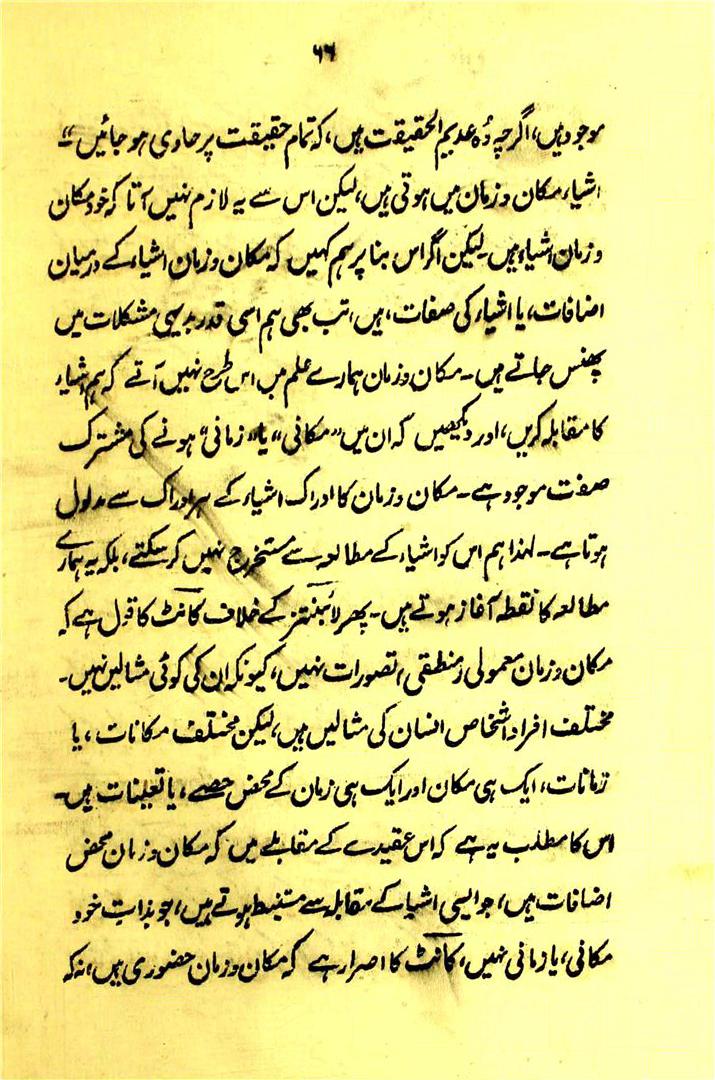 ۶۶
موجود ہیں، اگرچہ وُہ عدیم الحقیقت ہیں، کہ تمام حقیقت پر حاوی ہو جائیں“۔
اشیاء مکان و زمان میں ہوتی ہیں، لیکن اس سے یہ لازم نہیں آتا کہ خود مکان
و زمان اشیاء ہیں۔ لیکن اگر اس بنا پر ہم کہیں کہ مکان و زمان اشیاء کے درمیان
اضافات، یا اشیاء کی صفات، ہیں، تب بھی ہم اسی قدر بدیہی مشکلات میں
پھنس جاتے ہیں۔ مکان و زمان ہمارے علم میں اس طرح نہیں آتے کہ ہم اشیاء
کا مقابلہ کریں، اور دیکھیں کہ ان میں ”مکانی“ یا ”زمانی“ ہونے کی مشترک
صفت موجود ہے۔ مکان و زمان کا ادراک اشیاء کے ہر ادراک سے مدلول
ہوتا ہے۔ لہذا ہم اس کو اشیاء کے مطالعہ سے مستخرج نہیں کر سکتے، بلکہ یہ ہمارے
مطالعہ کا نقطہ آغاز ہوتے ہیں۔ پھر لائبنتز کے خلاف کانٹ کا قول ہے کہ
مکان و زمان معمولی (منطقی) تصورات نہیں، کیونکہ ان کی کوئی مثالیں نہیں۔
مختلف افراد اشخاص انسان کی مثالیں ہیں، لیکن مختلف مکانات، یا
زمانات، ایک ہی مکان اور ایک ہی زمان کے محض حصے، یا تعینات ہیں۔
اس کا مطلب یہ ہے کہ اس عقیدے کے مقابلے میں کہ مکان و زمان محض
اضافات ہیں، جو ایسی اشیاء کے مقابلہ سے مستنبط ہوتے ہیں، جو بذاتِ خود
مکانی، یا زمانی نہیں، کانٹ کا اصرار ہے کہ مکان و زمان حضوری ہیں، نہ کہ